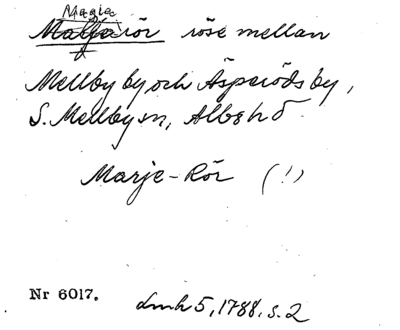 Magle
Maljarör röse mellan
Mellby by och Äsperöds by,
S. Mellby sn, Albo hd
Marje-Rör (!)
Nr 6017.
Lmh 5, 1788, s. 2